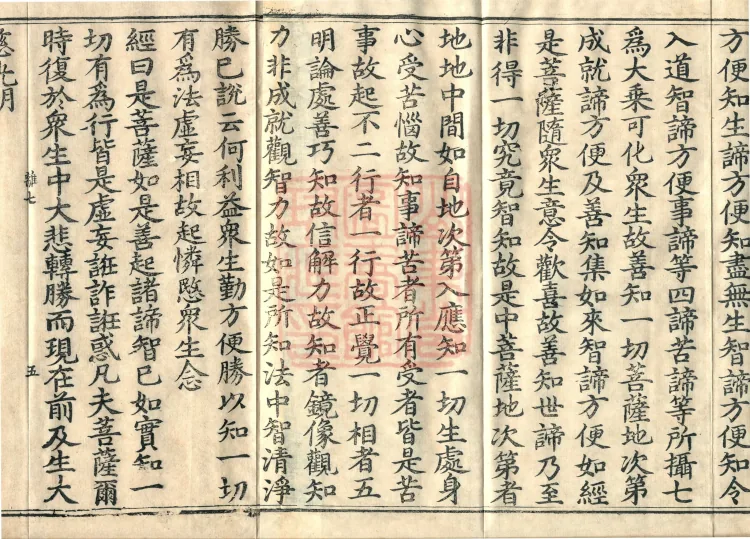 方便知生諦方便知盡無生智諦方便知令
入道智諦方便事諦等四諦苦諦等所攝七
為大乘可化眾生故善知一切菩薩地次第
成就諦方便及善知集如來智諦方便如經
是菩薩隨眾生意令歡喜故善知世諦乃至
非得一切究竟智知故是中菩薩地次第者
地地中間如自地次第入應知一切生處身
心受苦惱故知事諦苦者所有受者皆是苦
事故起不二行者一行故正覺一切相者五
明論處善巧知故信解力故知者鏡像觀知
力非成就觀智力故如是所知法中智清淨
勝已說云何利益眾生勤方便勝以知一切
有為法虛妄相故起憐愍眾生念
經曰是菩薩如是善起諸諦智已如實知一
切有為行皆是虛妄誑詐誑惑凡夫菩薩爾
時復於眾生中大悲轉勝而現在前及生大
雜七
五
慈光明